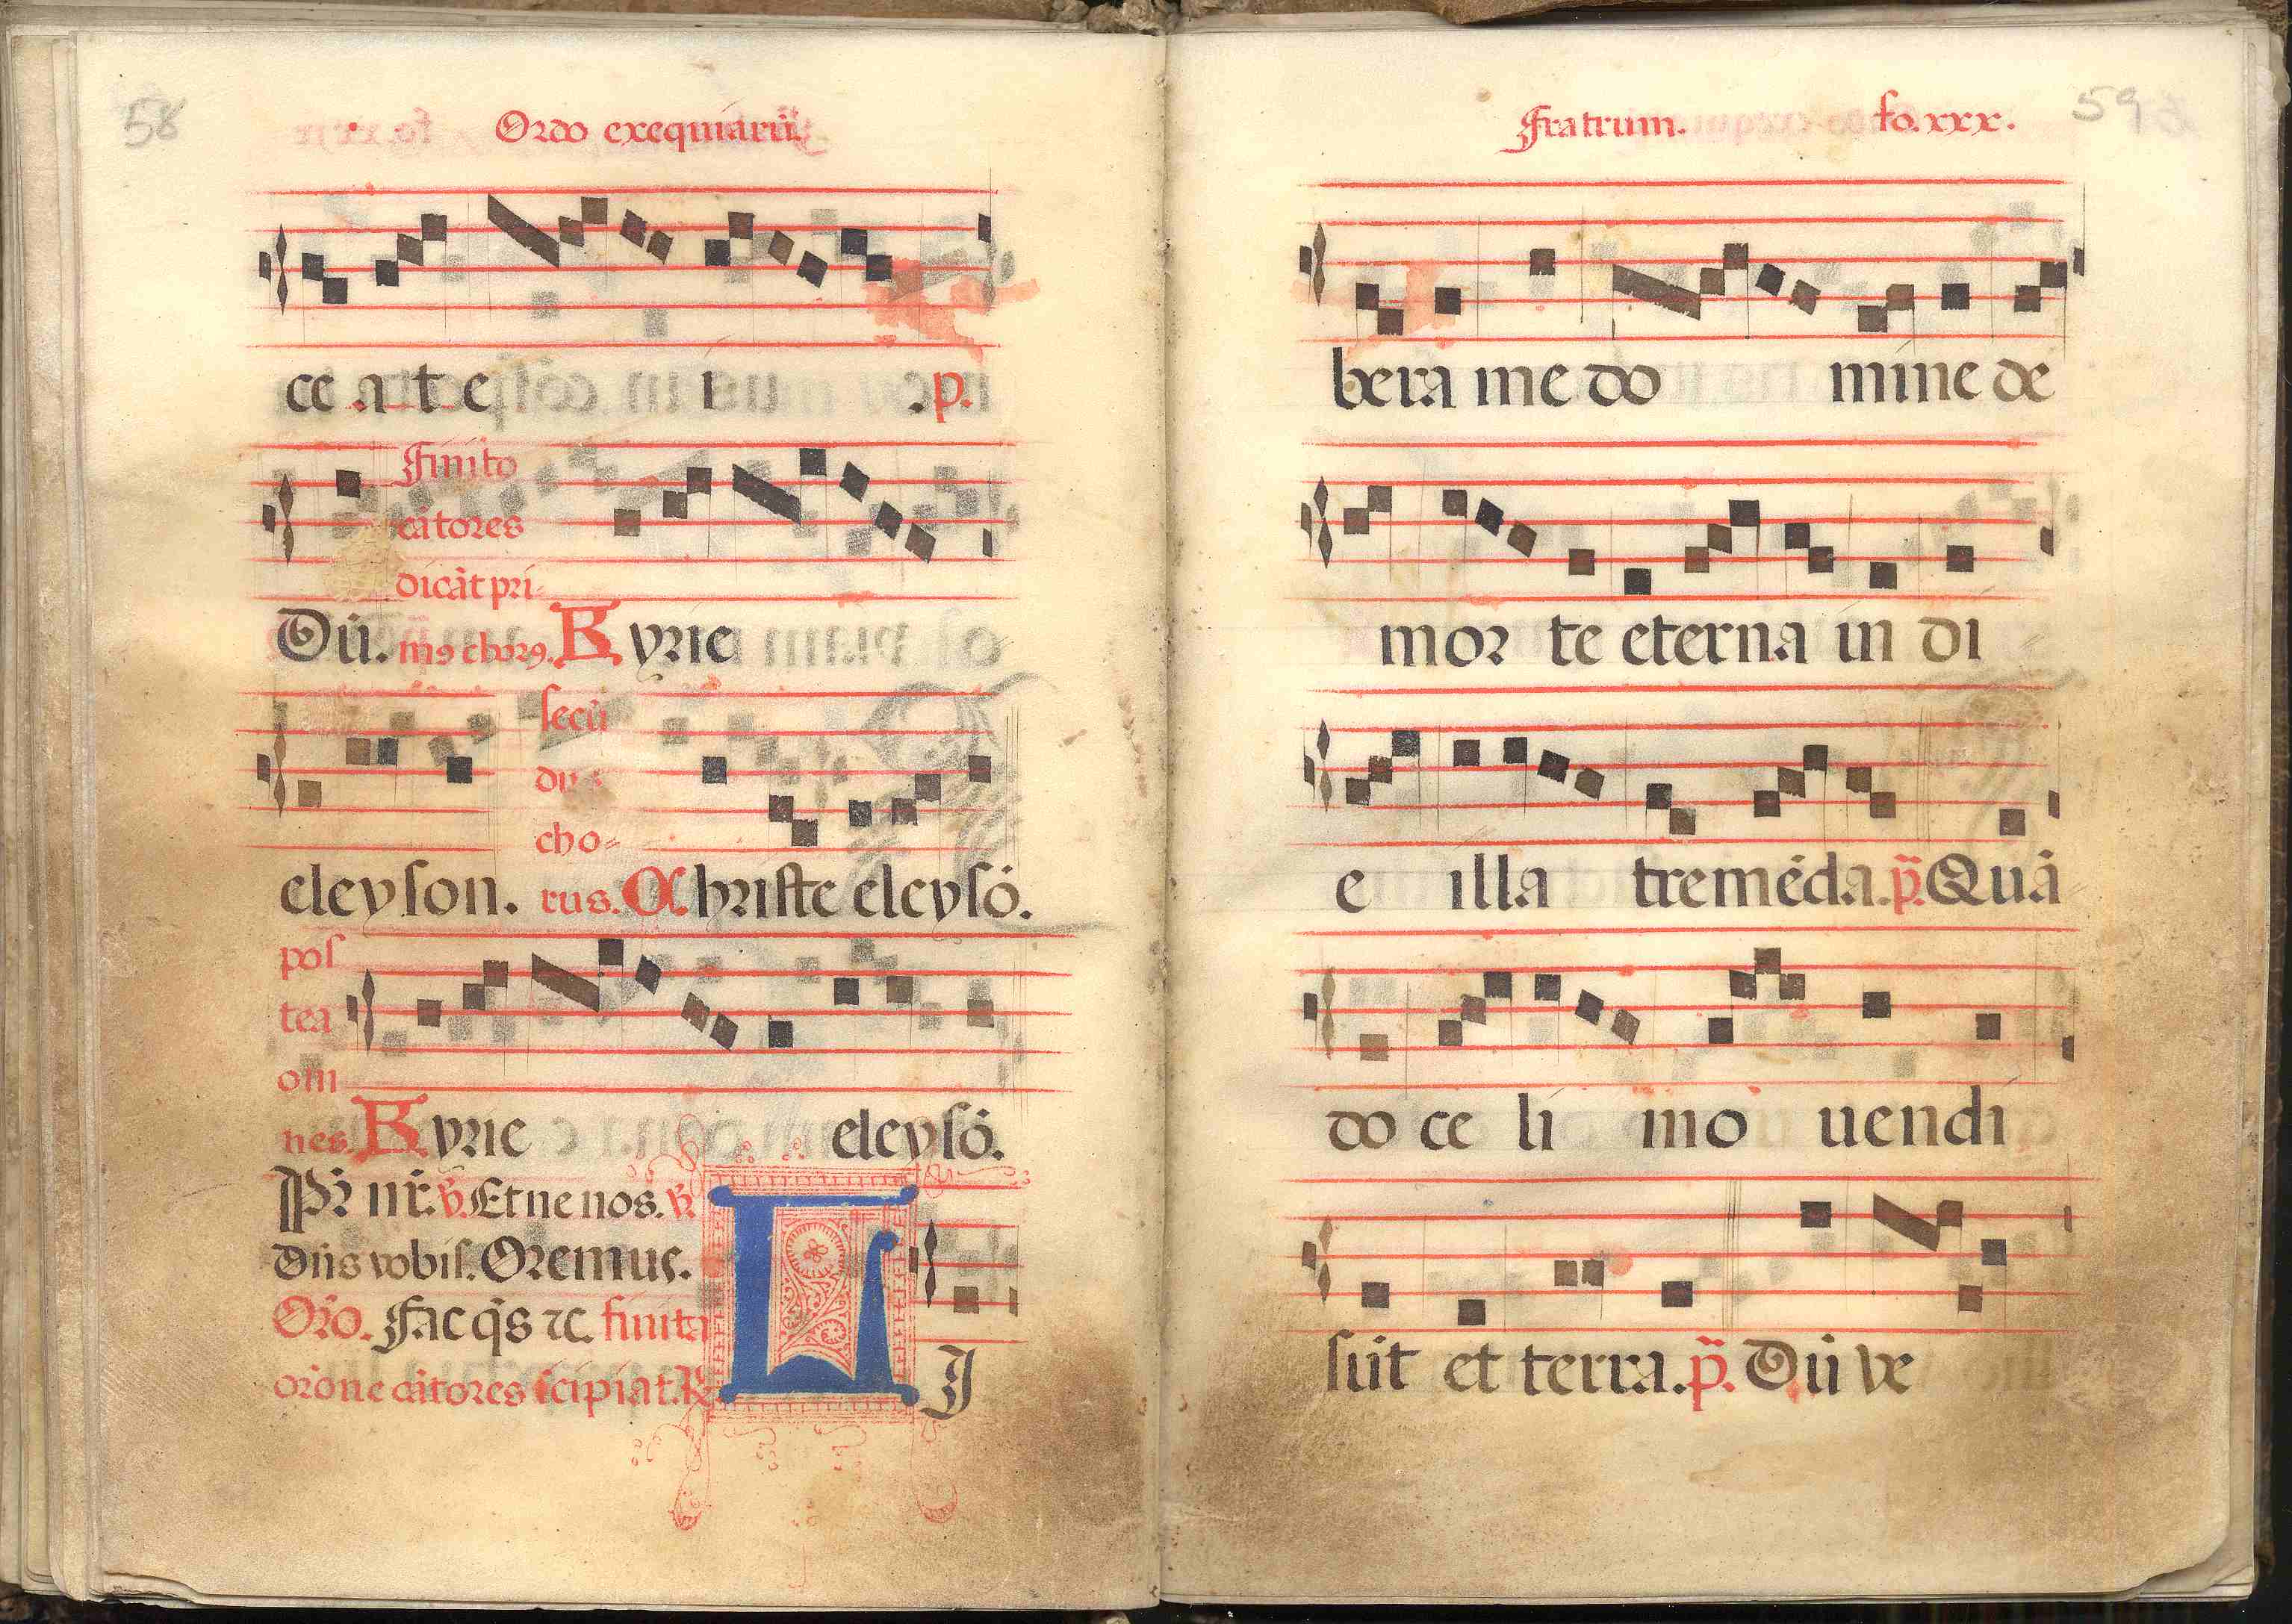 58
Ordo exequiarū.
ce a t e i us .p.
Finito
cātores
dicāt pri-
Dū. mꝯ chorꝯ. Kyrie
secū
dus
cho-
eleyson. rus. Christe eleysō.
pos
tea
om
nes. Kyrie eleysō.
Pr̄ nr̄. ꝟ. Et ne nos. ꝟ.
Dñs vobis. Oremus.
Orō. Fac q̄s ⁊c. finita
orōne cātores īcipiāt. ℟. LI
59
Fratrum. fo. xxx.
bera me do mine de
mor te eterna in di
e illa tremēda. p̄. Quā-
do ce li mo uendi
sūt et terra. p̄. Dū ve